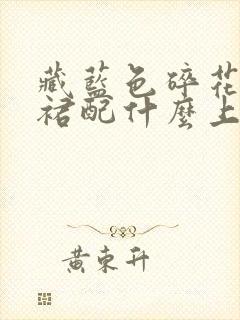 藏藍色碎花
裙配什麼上
黃東升